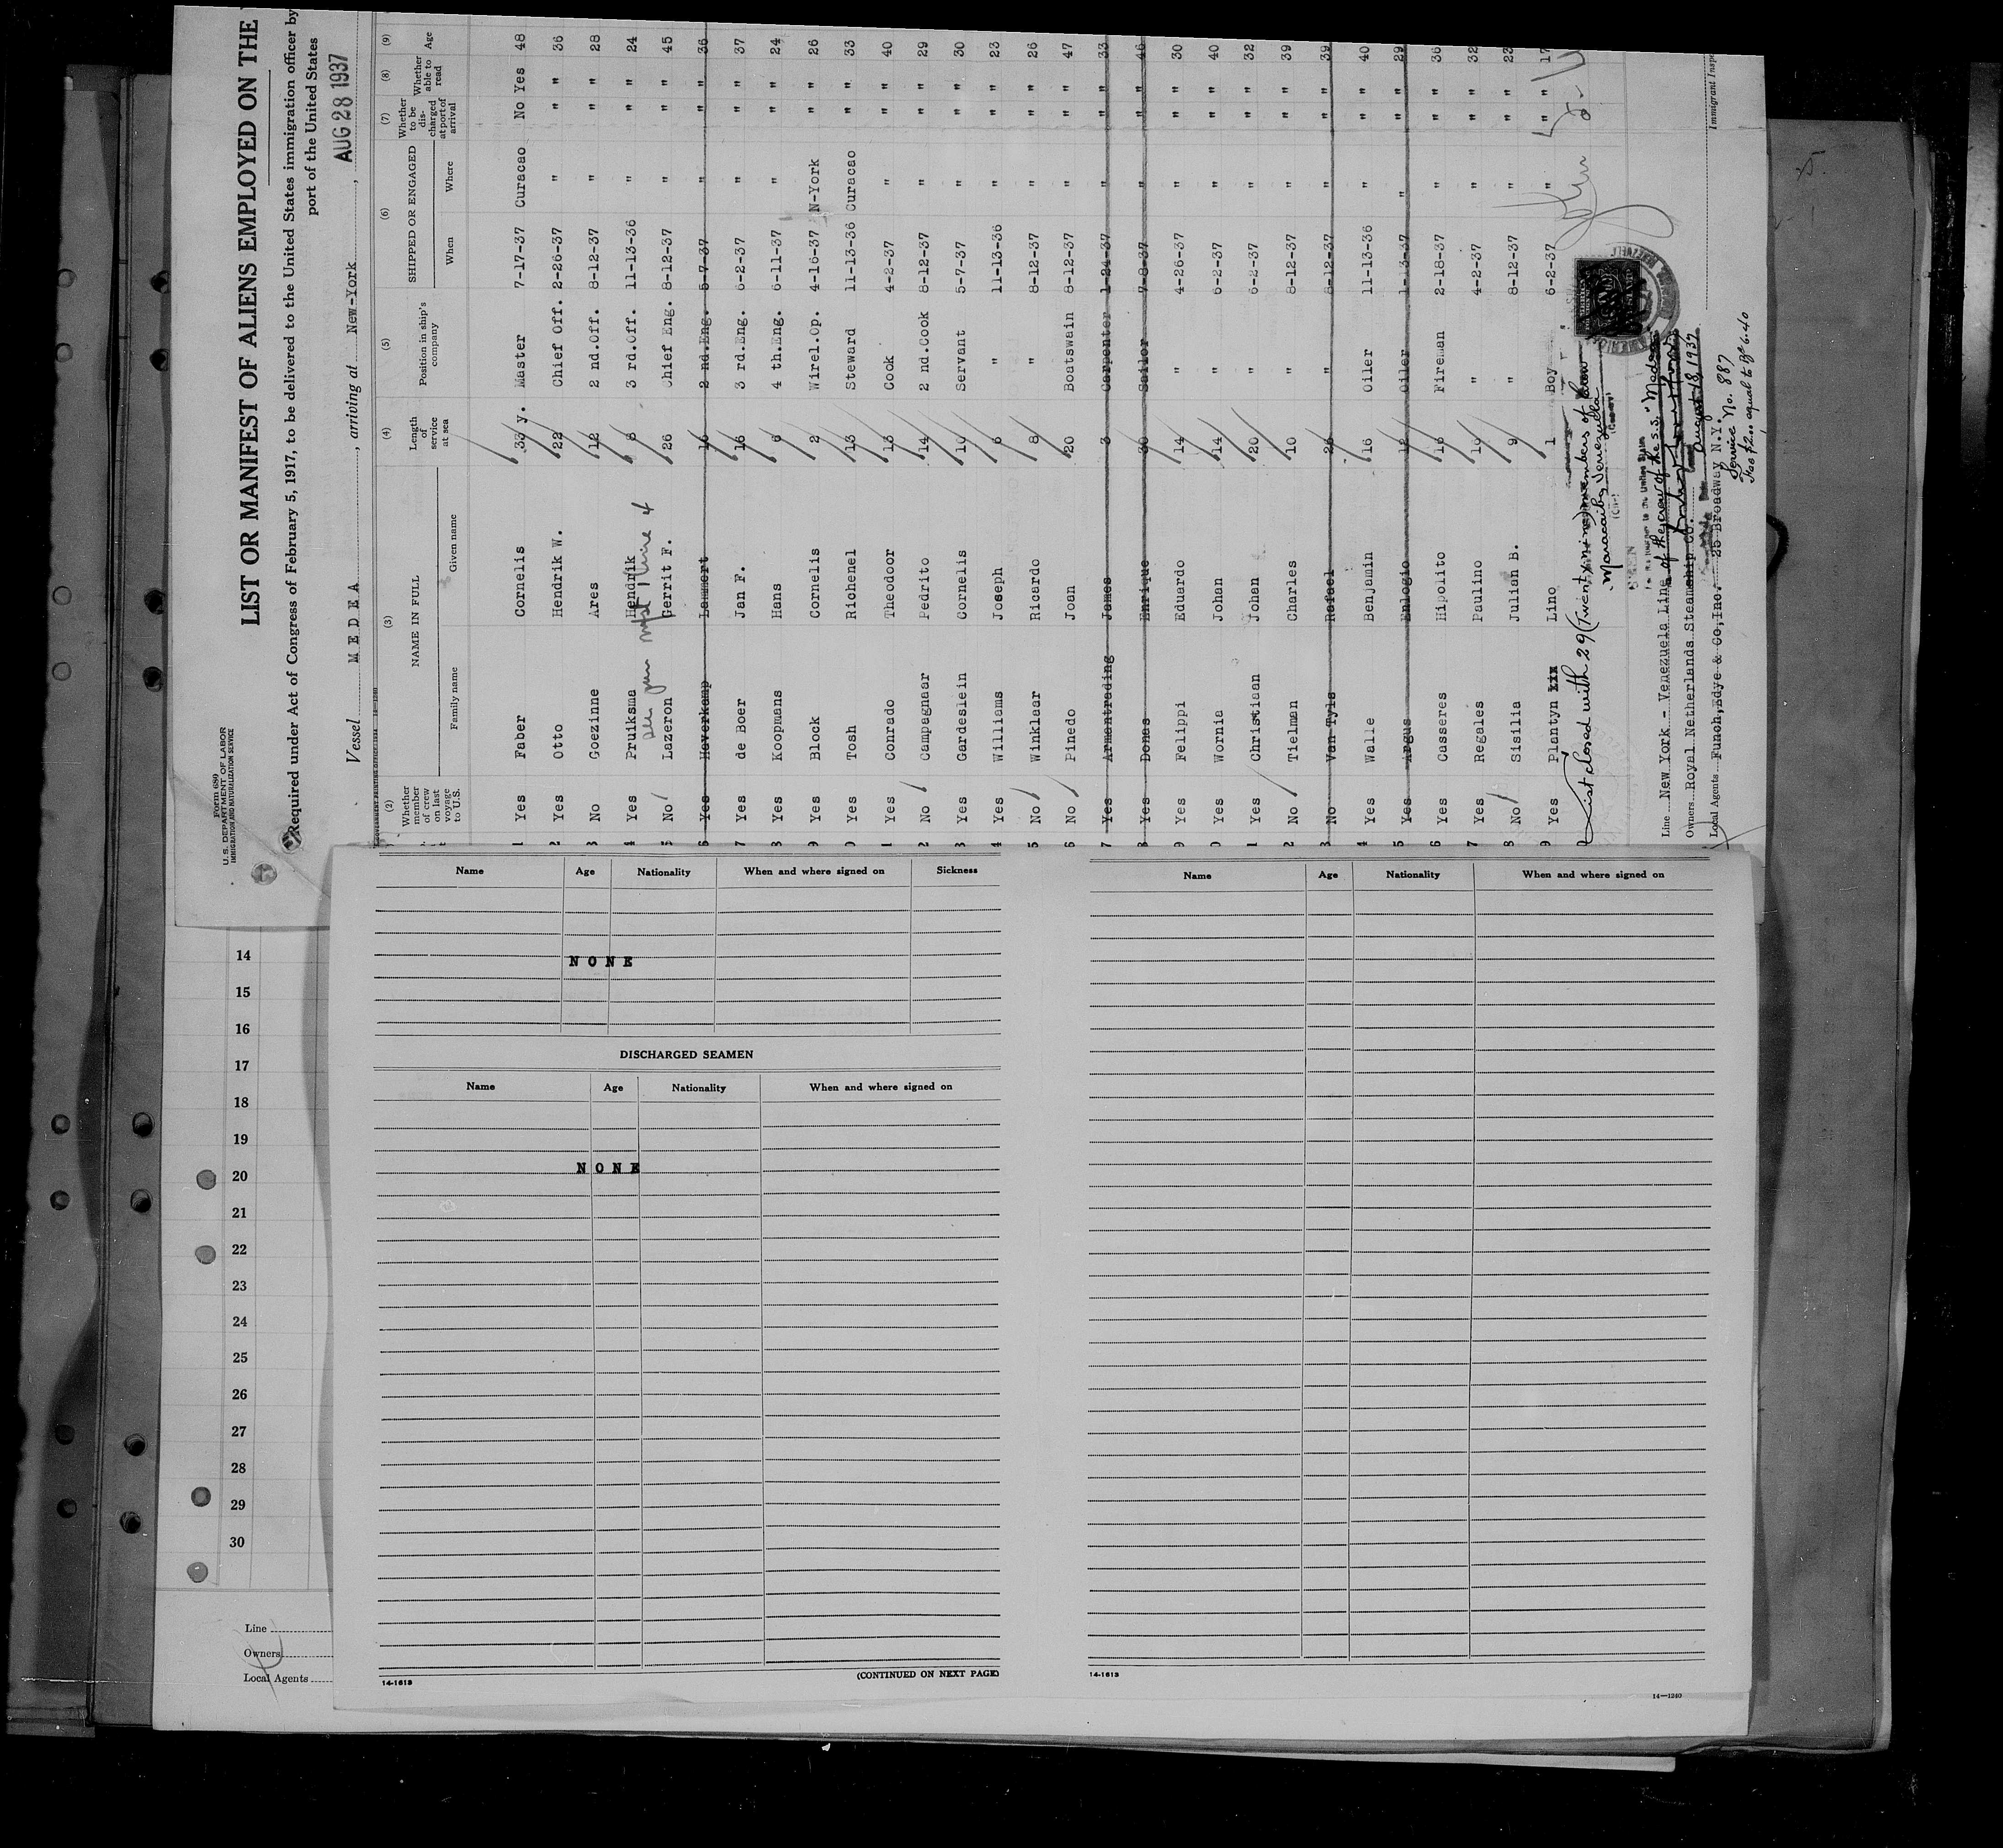 Form 689
U. S. DEPARTMENT OF LABOR
IMMIGRATION AND NATURALIZATION SERVICE
LIST OR MANIFEST OF ALIENS EMPLOYED ON THE
Required under Act of Congress of February 5, 1917, to be delivered to the United States immigration officer by
port of the United States
Vessel MEDEA , arriving at New-York , AUG 28 1937
(2) (3) (4) (5) (6) (7) (8) (9)
Whether member of crew on last voyage to U.S. NAME IN FULL Family name Given name Length of service at sea Position in ship's company SHIPPED OR ENGAGED When Where Whether to be discharged at port of arrival Whether able to read Age
1 Yes Faber Cornelis 33 y. Master 7-17-37 Curacao No Yes 48
2 Yes Otto Hendrik W. 22 Chief Off. 2-26-37 " " " 36
3 No Goezinne Ares 12 2 nd.Off. 8-12-37 " " " 28
4 Yes Pruiksma Hendrik 6 3 rd.Off. 11-13-36 " " " 24
5 No Lazeron Gerrit F. 26 Chief Eng. 8-12-37 " " " 45
6 Yes Haverkamp Lammert 16 2 nd.Eng. 5-7-37 " " " 36
7 Yes de Boer Jan F. 16 3 rd.Eng. 6-2-37 " " " 37
8 Yes Koopmans Hans 6 4 th.Eng. 6-11-37 " " " 24
9 Yes Block Cornelis 2 Wirel.Op. 4-16-37 N-York " " 26
0 Yes Tosh Richenel 13 Steward 11-13-36 Curacao " " 33
1 Yes Conrado Theodoor 13 Cock 4-2-37 " " " 40
2 No Campagnaar Pedrito 14 2 nd.Cook 8-12-37 " " " 29
3 Yes Gardeslein Cornelis 10 Servant 5-7-37 " " " 30
4 Yes Williams Joseph 6 " 11-13-36 " " " 23
5 No Winklaar Ricardo 8 " 8-12-37 " " " 26
6 No Pinedo Joan 20 Boatswain 8-12-37 " " " 47
7 Yes Armantrading James 3 Carpenter 1-24-37 " " " 33
8 Yes Donas Enrique 30 Sailor 7-8-37 " " " 46
9 Yes Felippi Eduardo 14 " 4-26-37 " " " 30
0 Yes Wornia Johan 14 " 6-2-37 " " " 40
1 Yes Christiaan Johan 20 " 6-2-37 " " " 32
2 No Tielman Charles 10 " 8-12-37 " " " 39
3 No Van Tyls Rafael 26 " 8-12-37 " " " 39
4 Yes Walle Benjamin 16 Oiler 11-13-36 " " " 40
5 Yes Argus Enlogio 12 Oiler 1-13-37 " " " 29
6 Yes Casseres Hipolito 16 Fireman 2-18-37 " " " 36
7 Yes Regales Paulino 16 " 4-2-37 " " " 32
8 No Sisilia Julian B. 9 " 8-12-37 " " " 23
9 Yes Plantyn Lino 1 Boy 6-2-37 " " " 17
List closed with 29 (Twenty nine) members of crew
Maracaibo, Venezuela
of the crew of the s.s. "Medea"
August 18, 1937
Service No. 887
Fee $2.00 equal to Bs 6.40
Line New York - Venezuela Line
Owners Royal Netherlands Steamship Co.
Local Agents Funch, Edye & Co, Inc. 25 Broadway N.Y.
Immigrant Inspe
Name Age Nationality When and where signed on Sickness
NONE
DISCHARGED SEAMEN
Name Age Nationality When and where signed on
NONE
14-1613
(CONTINUED ON NEXT PAGE)
Name Age Nationality When and where signed on
14-1613
14
15
16
17
18
19
20
21
22
23
24
25
26
27
28
29
30
Line
Owners
Local Agents
14—1240